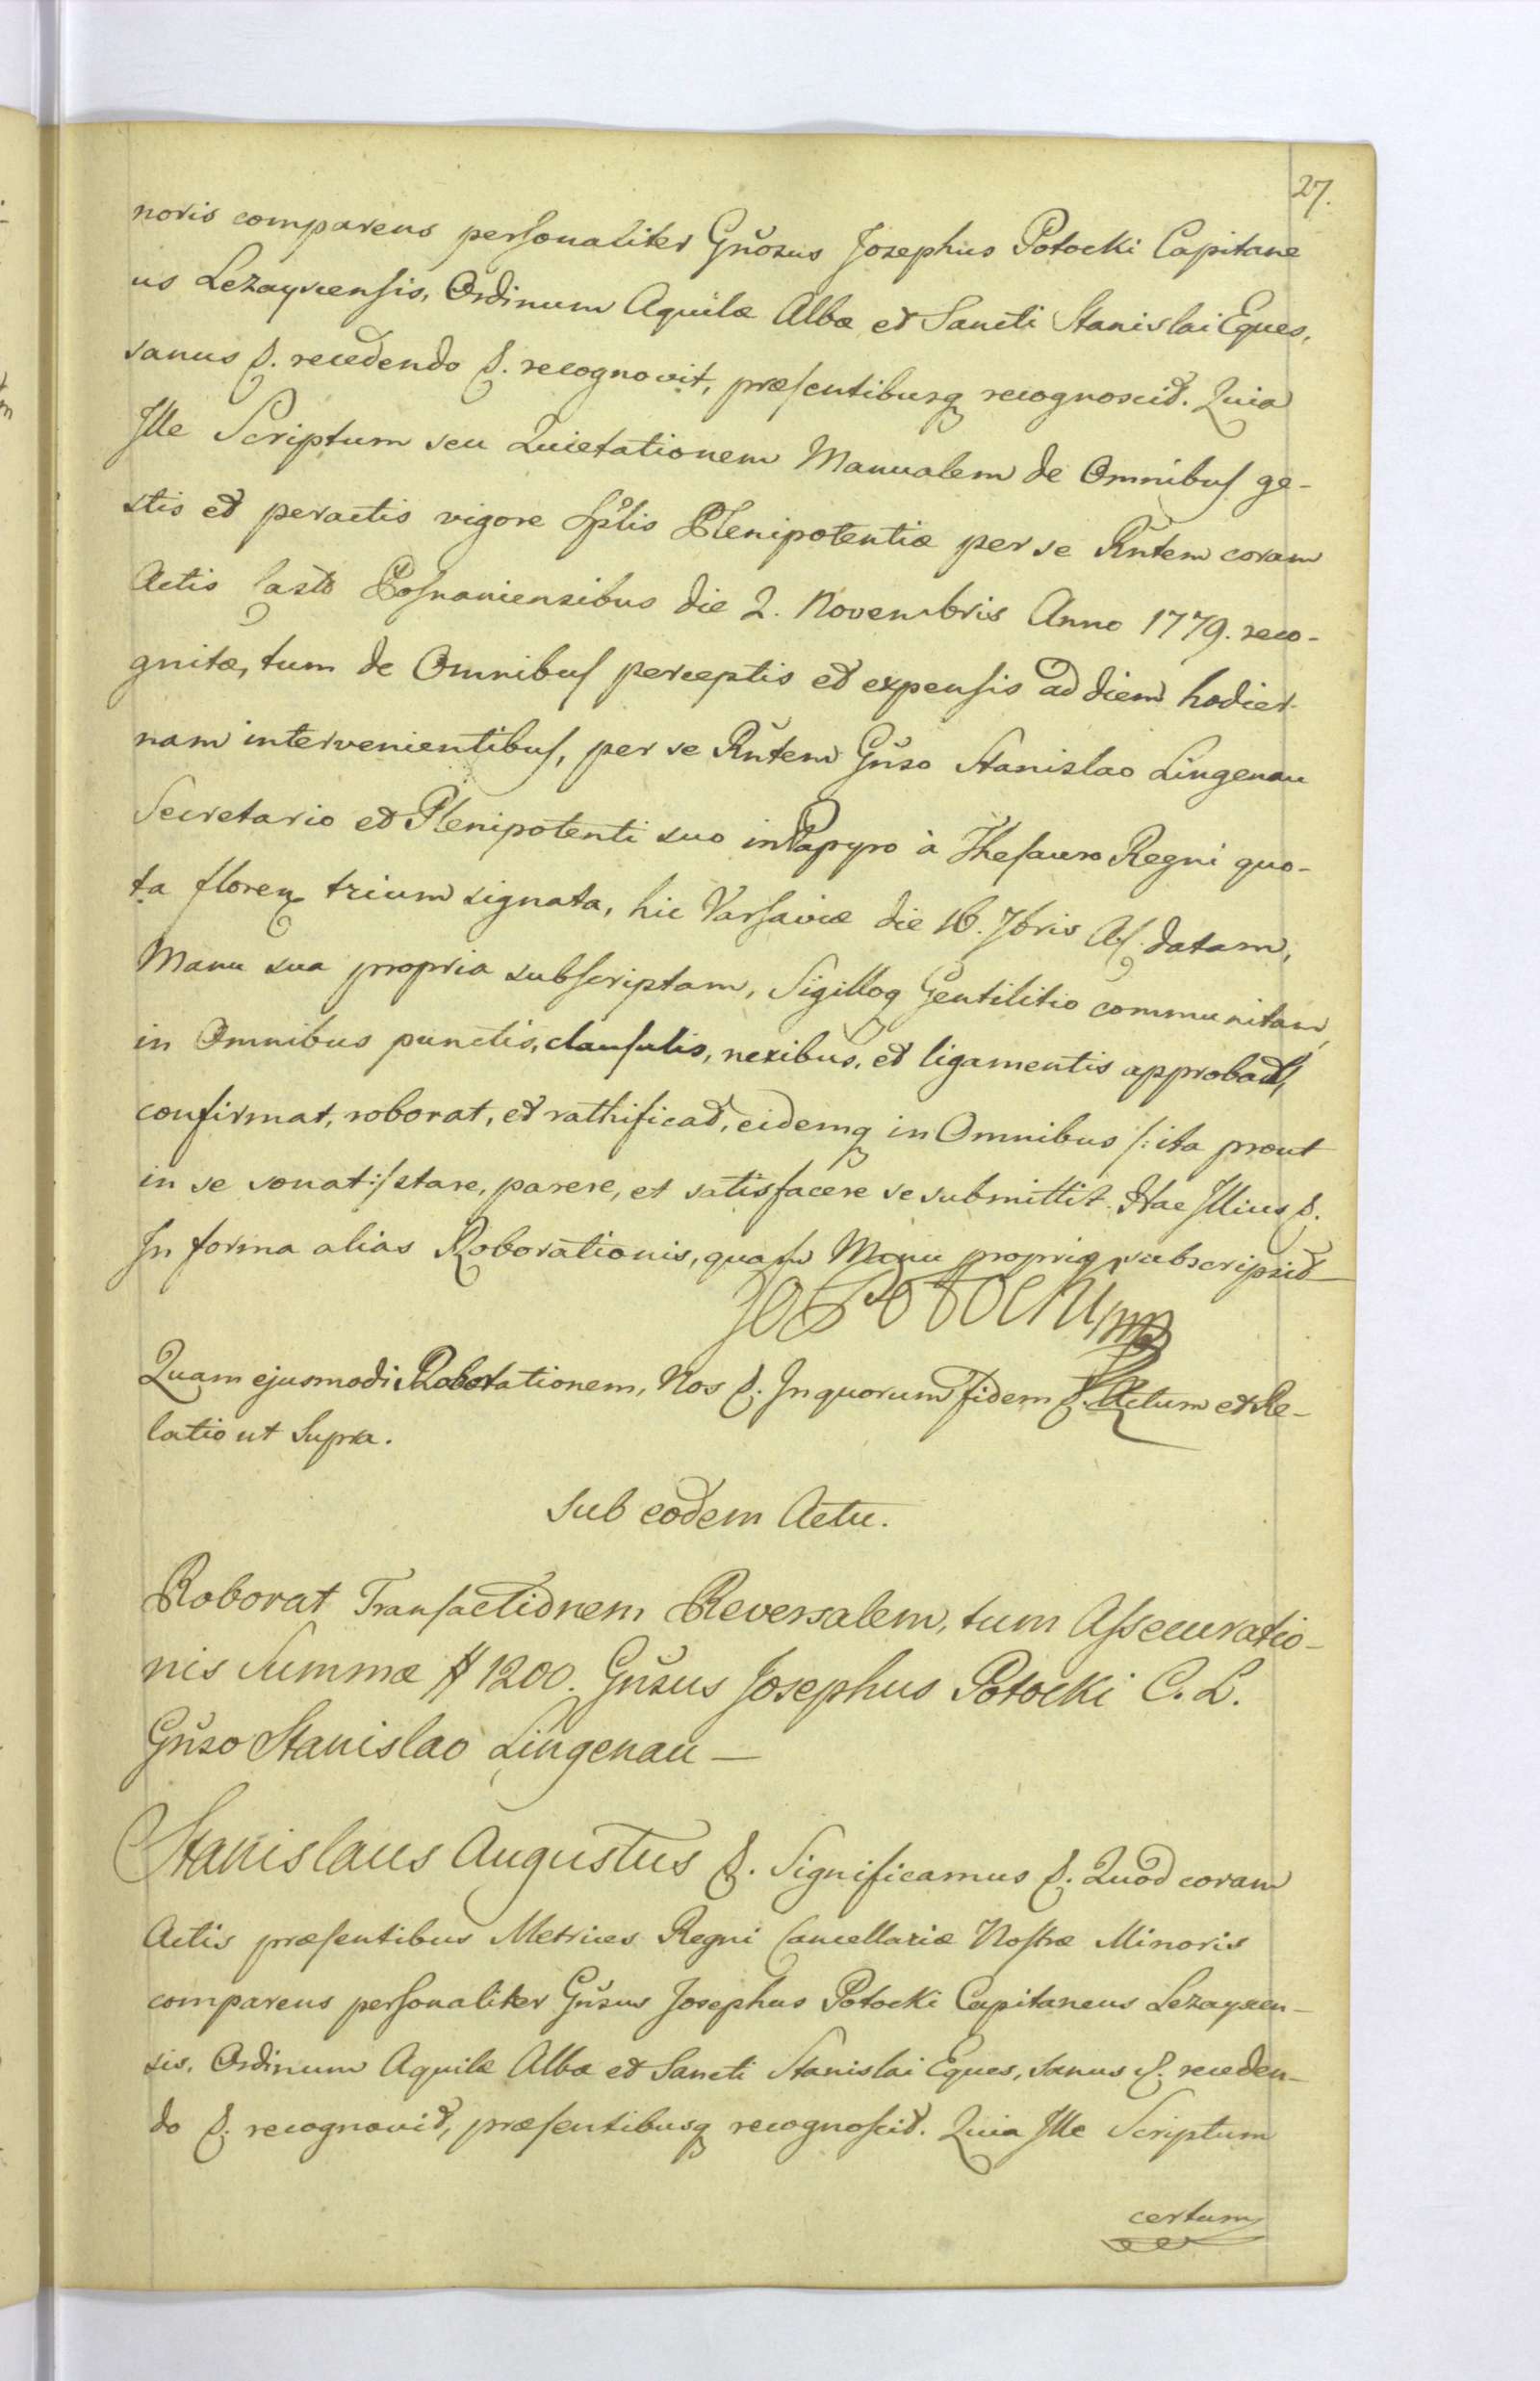 27.
noris comparens personaliter Gn̆osus Josephus Potocki Capitane
us Lezayscensis, Ordinum Aquilæ Albæ et Sancti Stanislai Eques,
sanus &. recedendo &. recognovit, præsentibusq recognoscit. Quia
Ille Scriptum seu Quietationem Manualem de Omnibus ge-
stis et peractis vigore Splis Plenipotentiæ per se Rn̆tem coram
Actis Castr Posnaniensibus die 2. Novembris Anno 1779. reco-
gnitæ, tum de Omnibus perceptis et expensis ad diem hodier-
nam intervenientibus, per se Rn̆tem Gn̆so Stanislao Lingenau
Secretario et Plenipotenti suo in Papyro à Thesauro Regni quo-
ta floren trium signata, hic Varsaviæ die 16. 7bris datam,
Manu sua propria subscriptam, Sigilloq Gentilitio communitam,
in Omnibus punctis, clausulis, nexibus, et ligamentis approbat,
confirmat, roborat, et rathificat, eidemq in Omnibus /: ita prout
in se sonat :/ stare, parere, et satisfacere se submittit. Hac Illius &.
In forma alias Roborationis, quam Manu propria subscripsit
Jos Potocki mp
Quam ejusmodi Roborationem, Nos &. In quorum fidem &. Actum et Re-
latio ut Supra.
Sub eodem Actu.
Roborat Transactionem Reversalem, tum Assecuratio-
nis Summæ # 1200. Gn̆sus Josephus Potocki C. L.
Gn̆so Stanislao Lingenau —
Stanislaus Augustus &. Significamus &. Quod coram
Actis præsentibus Metrices Regni Cancellariæ Nostræ Minoris
comparens personaliter Gn̆sus Josephus Potocki Capitaneus Lezayscen-
sis, Ordinum Aquilæ Albæ et Sancti Stanislai Eques, sanus &. receden-
do &. recognovit, præsentibusq recognoscit. Quia Ille Scriptum
certum